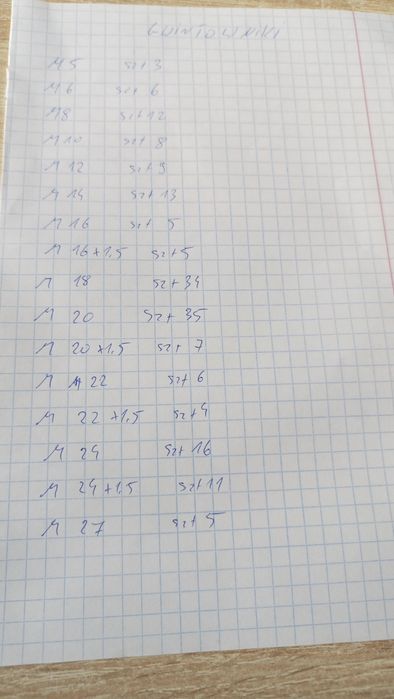 GWINTOWNIKI
M 5 szt 3
M 6 szt 6
M8 szt 12
M 10 szt 8
M 12 szt 9
M 14 szt 13
M 16 szt 5
M 16 x 1,5 szt 5
M 18 szt 34
M 20 szt 35
M 20 x 1,5 szt 7
M 22 szt 6
M 22 x 1,5 szt 4
M 24 szt 16
M 24 x 1,5 szt 11
M 27 szt 5